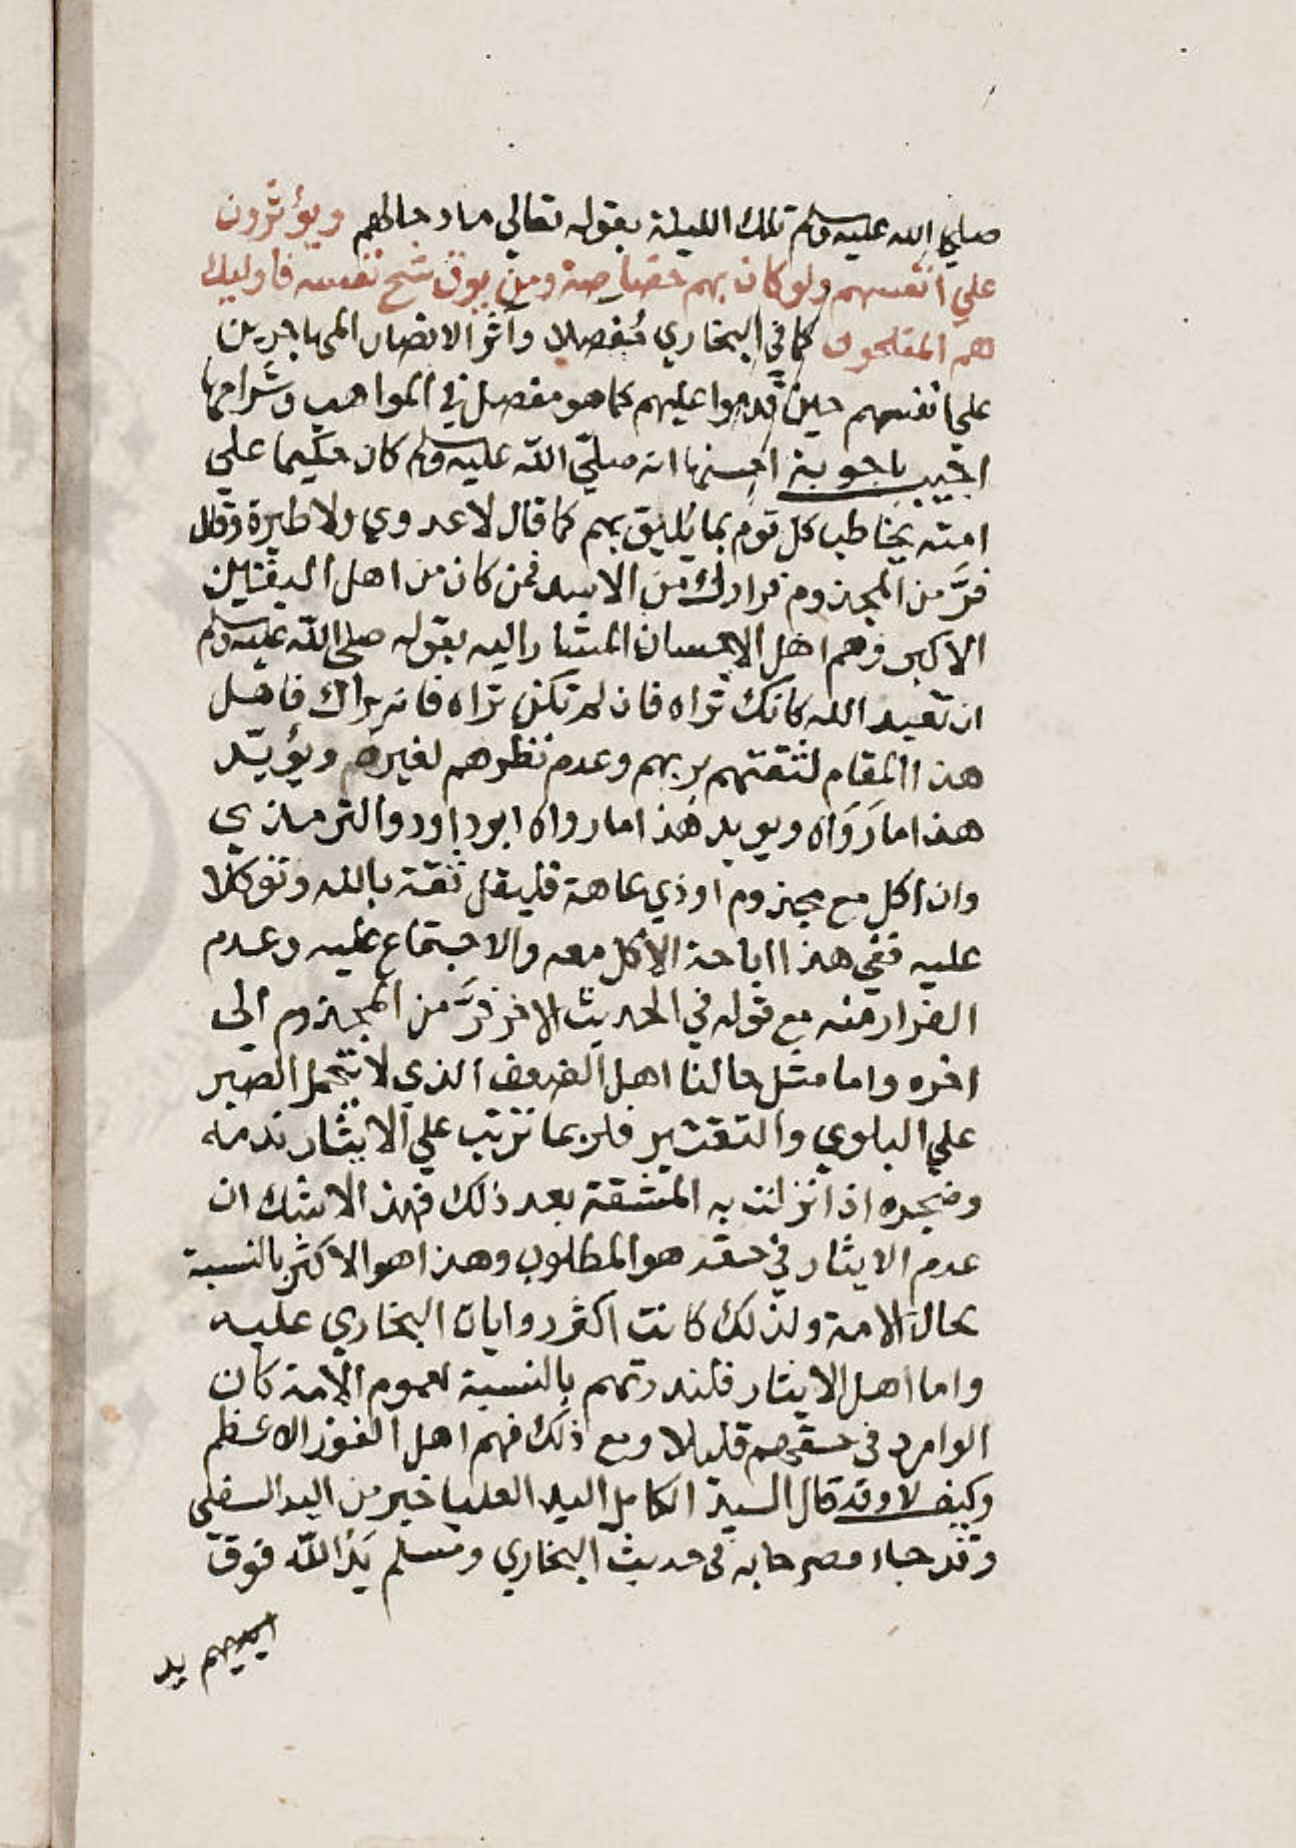 صلي الله عليه وسلم تلك الليلة بقوله تعالي مادحالهم ويؤثرون
علي انفسهم ولو كان بهم خصاصة ومن يوق شح نفسه فاوليك
هم المفلحون كما في البخاري مُفصلا وآثر الانصار المهاجرين
علي انفسهم حين قدموا عليهم كما هو مفصل في المواهب وشراحها
اجيب باجوبة احسنها انه صليّ الله عليه وسلم كان حكيما علي
امته يخاطب كل قوم بما يليق بهم كما قال لا عدوي ولا طيرة وقال
فرَّ من المجذوم فرارك من الاسد فمن كان من اهل اليقين
الاكبر وهم اهل الاحسان المشار اليه بقوله صلي الله عليه وسلم
ان تعبد الله كانك تراه فان لم تكن تراه فانه يراك فاهل
هذا المقام لثقتهم بربهم وعدم نظرهم لغيره ويؤيّد
هذا ما رَوَاه ويويد هذا ما رواه ابو داود والترمذي
وان اكل مع مجذوم او ذي عاهة فليقل ثقة بالله وتوكلا
عليه ففي هذا اباحة الاكل معه والاجتماع عليه وعدم
الفرار منه مع قوله في الحديث الاخر فرَّ من المجذوم الى
اخره واما مثل حالنا اهل الضعف الذي لا تتحمل الصبر
علي البلوي والتقتير فلربما ترتب علي الايثار ندمه
وضجره اذا نزلت به المشقة بعد ذلك فهذا لا شك ان
عدم الايثار في حقه هو المطلوب وهذا هو الاكثر بالنسبة
بحال الامة ولذلك كانت اكثر روايات البخاري عليه
واما اهل الايثار فلندرتهم بالنسبة لعموم الامة كان
الوارد في حقهم قليلا ومع ذلك فهم اهل الفوز الاعظم
وكيف لا وقد قال السيد الكامل اليد العليا خير من اليد السفلى
وقد جاء مصرحا به في حديث البخاري ومسلم يَدُ الله فوق
ايديهم يد